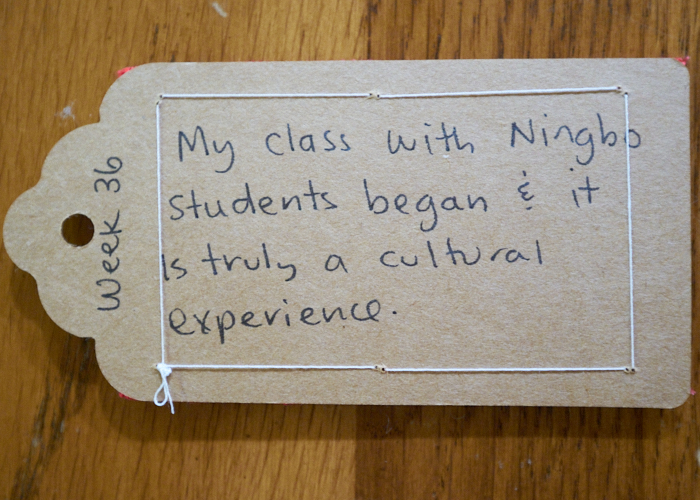 Week 36
My class with Ningbo
students began & it
is truly a cultural
experience.